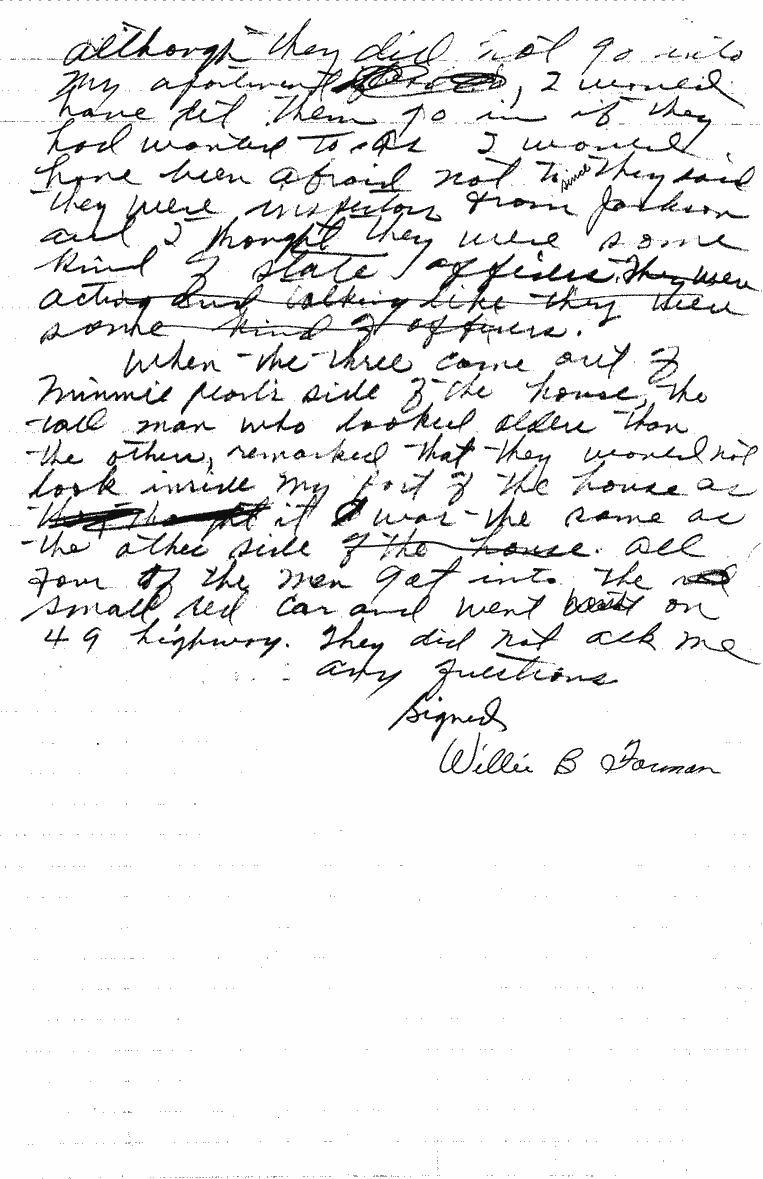 although they did not go into
my apartment, I would
have let them go in if they
had wanted to as I would
have been afraid not to since they said
they were inspectors from Jackson
and I thought they were some
kind of state officers. They were
acting and talking like they were
some kind of officers.
When the three came out of
Minnie Pearl's side of the house, the
tall man who looked older than
the others, remarked that they would not
look inside my part of the house as
they thought it was the same as
the other side of the house. All
four of the men got into the
small red car and went on
49 highway. They did not ask me
any questions
Signed
Willie B Forman